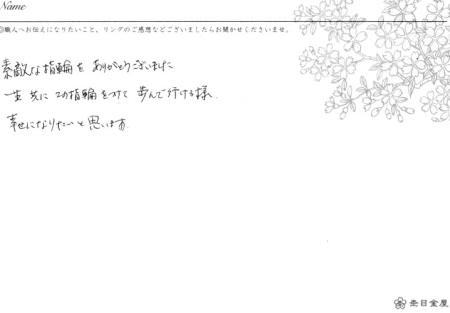 Name
◎職人へお伝えになりたいこと、リングのご感想などございましたらお聞かせくださいませ。
素敵な指輪を ありがとうございました
一生 共に この指輪をつけて 歩んで行ける様、
幸せになりたいと思います。
杢目金屋